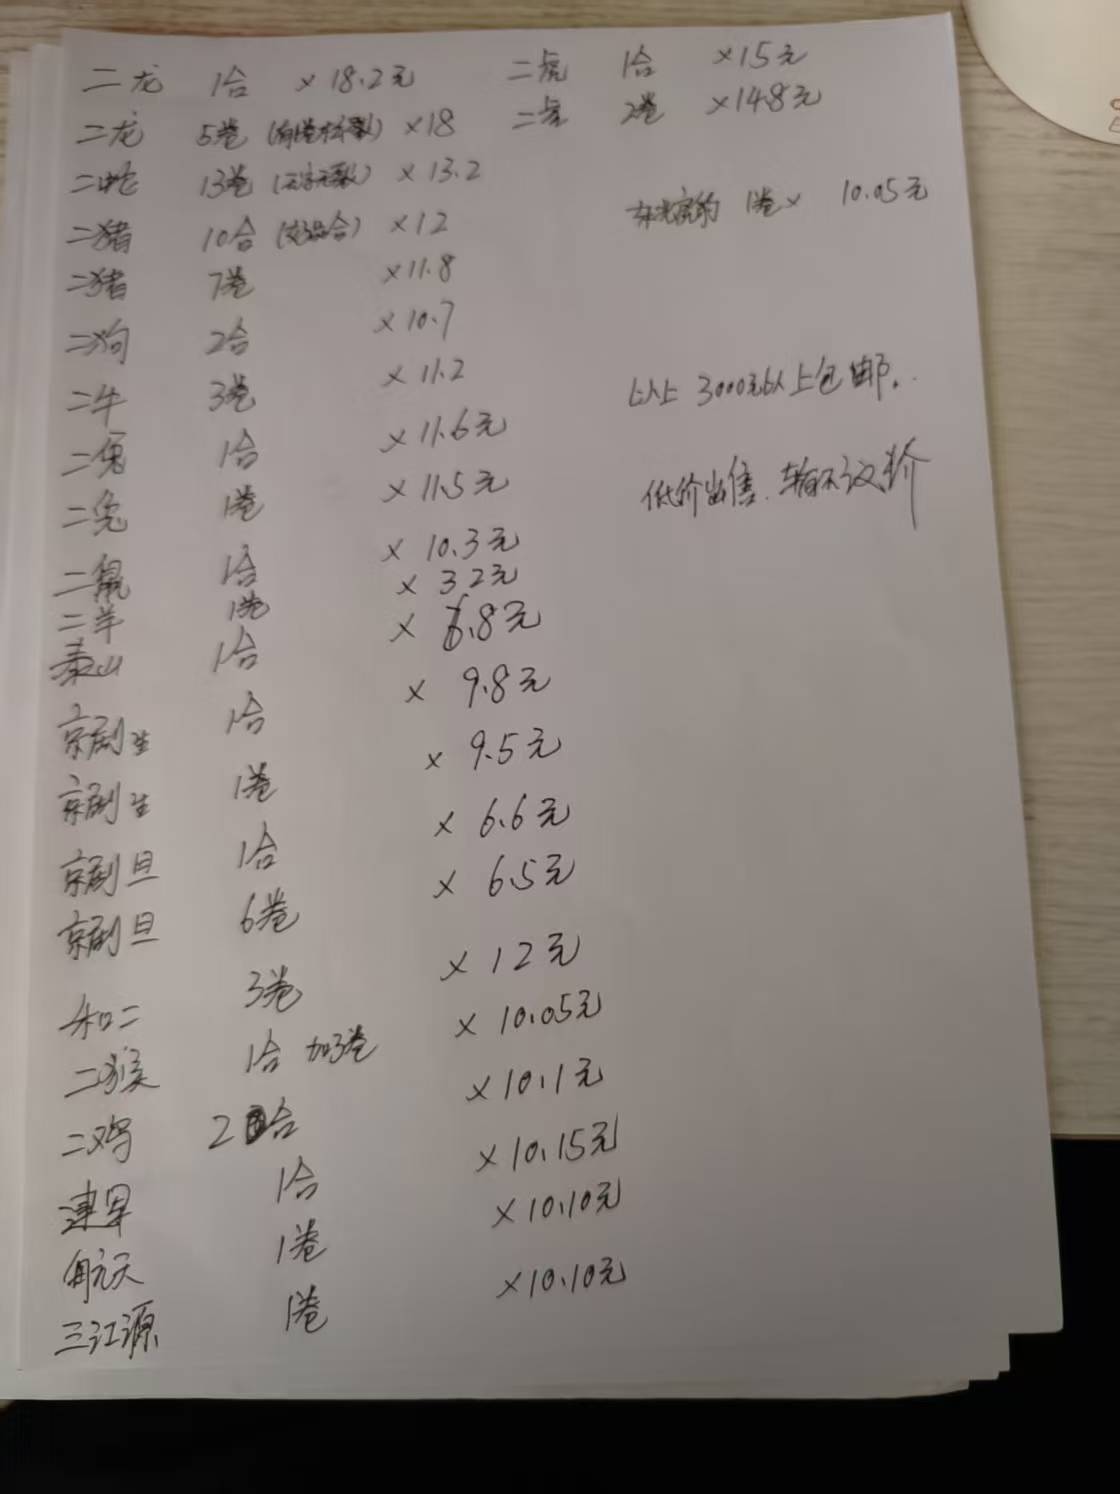 二龙 1合 ×18.2元
二龙 5卷 ×18
二蛇 13卷 ×13.2
二猪 10合 ×12
二猪 7卷 ×11.8
二狗 2合 ×10.7
二牛 3卷 ×11.2
二兔 1合 ×11.6元
二兔 1卷 ×11.5元
二鼠 1合 ×10.3元
二羊 1卷 ×32元
泰山 1合 ×6.8元
京剧生 1合 ×9.8元
京剧生 1卷 ×9.5元
京剧旦 1合 ×6.6元
京剧旦 6卷 ×6.5元
和二 3卷 ×12元
二猴 1合加3卷 ×10.05元
二鸡 2合 ×10.1元
建军 1合 ×10.15元
航天 1卷 ×10.10元
三江源 1卷 ×10.10元
二虎 1合 ×15元
二虎 2卷 ×14.8元
1卷× 10.05元
以上 3000元以上包邮.
低价出售. 不议价